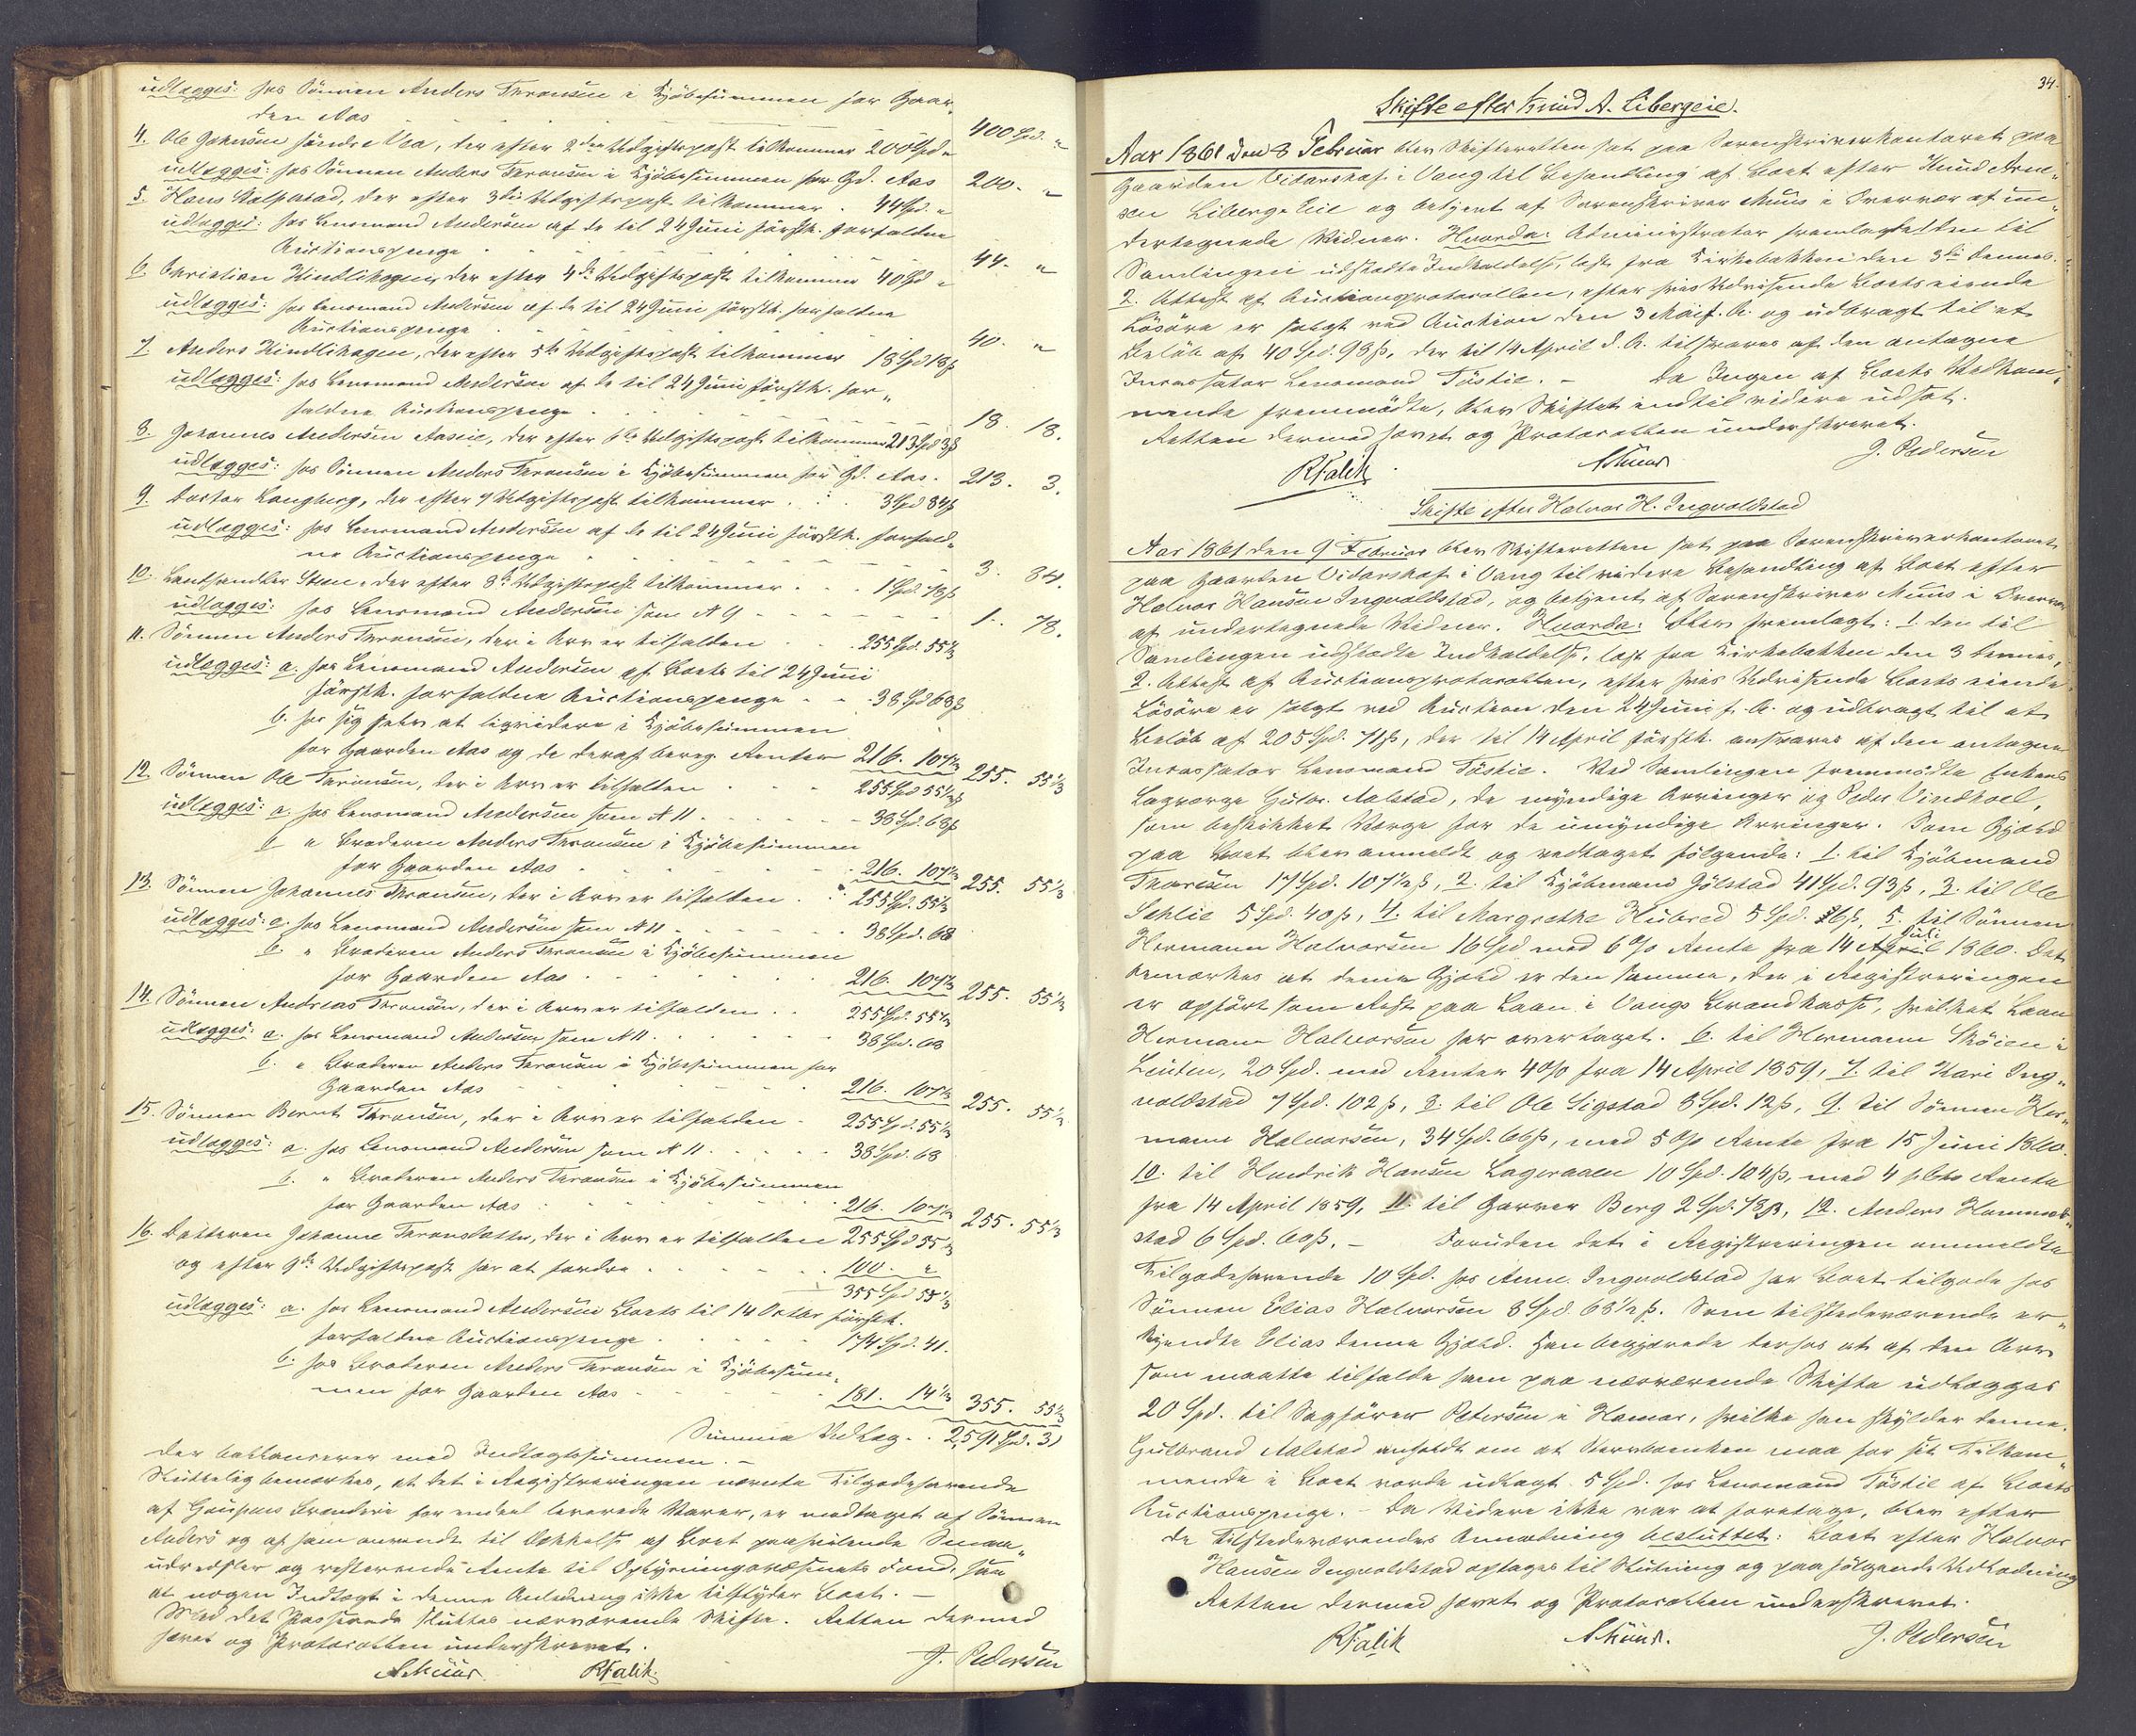 udlægges: hos Sønnen Anders Thronsen i Kjøbesummen for Gaar-
den Aas 400 Spd. "
4. Ole Johnsen søndre Vea, der efter 2den Udgiftspost tilkommer 200 Spd "
udlægges: hos Sønnen Anders Thronsen i Kjøbesummen for Gd. Aas 200. "
5. Hans, der efter 3die Udgiftspost tilkommer 44 Spd. "
udlægges: hos Lensmand Andersen af de til 24 Juni førstk. forfaldne
Auctionspenge 44. "
6. Christian Kindlihagen, der efter 4de Udgiftspost tilkommer 40 Spd "
udlægges: hos Lensmand Andersen af de til 24 Juni førstk. forfaldne
Auctionspenge 40. "
7. Anders Kindlihagen, der efter 5te Udgiftspost tilkommer 18 Spd 18 ß
udlægges: hos Lensmand Andersen af de til 24 Juni førstk. for-
faldne Auctionspenge 18. 18.
8. Johannes Andersen Aaseie, der efter 6te Udgiftspost tilkommer 213 Spd 3 ß
udlægges: hos Sønnen Anders Thronsen i Kjøbesummen for Gd. Aas. 213. 3.
9. Doctor Longberg, der efter 7 Udgiftspost tilkommer 3 Spd 84 ß
udlægges: hos Lensmand Andersen af de til 24 Juni førstk. forfald-
ne Auctionspenge 3. 84.
10. Landhandler Steen, der efter 8de Udgiftspost tilkommer 1 Spd. 78 ß
udlægges: hos Lensmand Andersen som N 9 1. 78.
11. Sønnen Anders Thronsen, der i Arv er tilfalden 255 Spd. 55 1/3
udlægges: a. hos Lensmand Andersen af Boets til 24 Juni
førstk. forfaldne Auctionspenge 38 Spd 68 ß
b. hos sig selv at liqvidere i Kjøbesummen
for Gaarden Aas og de deraf bereg. Renter 216. 107 1/3 255. 55 1/3
12. Sønnen Ole Thronsen, der i Arv er tilfalden 255 Spd 55 1/3 ß
udlægges: a. hos Lensmand Andersen som N 11 38 Spd. 68 ß
b. " Broderen Anders Thronsen i Kjøbesummen
for Gaarden Aas 216. 107 1/3 255. 55 1/3
13. Sønnen Johannes Thronsen, der i Arv er tilfalden 255 Spd. 55 1/3
udlægges: a. hos Lensmand Andersen som N 11 38 Spd. 68
b. " Broderen Anders Thronsen i Kjøbesummen
for Gaarden Aas 216. 107 1/3 255. 55 1/3
14. Sønnen Andreas Thronsen, der i Arv er tilfalden 255 Spd. 55 1/3
udlægges: a. hos Lensmand Andersen som N 11. 38 Spd. 68
b. " Broderen Anders Thronsen i Kjøbesummen for
Gaarden Aas 216. 107 1/3 255. 55 1/3
15. Sønnen Bernt Thronsen, der i Arv er tilfalden 255 Spd. 55 1/3
udlægges: a. hos Lensmand Andersen som N 11 38 Spd. 68
b. " Broderen Anders Thronsen i Kjøbesummen
for Gaarden Aas 216. 107 1/3 255. 55 1/3
16. Datteren Johanne Thronsdatter, der i Arv er tilfalden 255 Spd 55 1/3
og efter 9de Udgiftspost har at fordre 100. "
355 Spd 55 1/3
udlægges: a. hos Lensmand Andersen Boets til 14 Octbr førstk.
forfaldne Auctionspenge 174 Spd. 41.
b. hos Broderen Anders Thronsen i Kjøbesum-
men for Gaarden Aas 181. 14 1/3 355. 55 1/3
Summa Udlæg 2,591 Spd. 31
der ballancerer med Indtægtssummen. –
Sluttelig bemærkes, at det i Registreringen nævnte Tilgodehavende
af Brænderi for endeel leverede Varer, er modtaget af Sønnen
Anders og af ham anvendt til Dækkelse af Boet paahvilende Smaa-
udredsler og resterende Rente til Oplysningsvæsenets Fond, saa
at nogen Indtægt i denne Anledning ikke tilflyder Boet. –
Med det Passerede sluttes nærværende Skifte. Retten dermed
hævet og Protocollen underskrevet.
AMuus RFalik J. Pedersen
34.
Skifte efter Knud A. Libergeie.
Aar 1861 den 8 Februar blev Skifteretten sat paa Sorenskriverkontoret paa
Gaarden Vidarshof i Vang til Behandling af Boet efter Knud Arne-
sen Liberg Eie og betjent af Sorenskriver Muus i Overvær af un-
dertegnede Vidner. Hvorda: Administrator fremlagde den til
Samlingen udstædte Indkaldelse, læst fra Kirkebakken den 3die dennes.
2. Attest af Auctionsprotocollen, efter hvis Udvisende Boets eiende
Løsøre er solgt ved Auction den 3 Mai f. A. og udbragt til et
Beløb af 40 Spd. 98 ß, der til 14 April d. A. tilsvares af den antagne
Incassator Lensmand Tøstie. – Da Ingen af Boets Vedkom-
mende fremmødte, blev Skiftet indtil videre udsat.
Retten dermed hævet og Protocollen underskrevet.
RFalik AMuus J. Pedersen
Skifte efter Halvor H. Ingvoldstad
Aar 1861 den 9 Februar blev Skifteretten sat paa Sorenskriverkontoret
paa Gaarden Vidarshof i Vang til videre Behandling af Boet efter
Halvor Hansen Ingvoldstad, og betjent af Sorenskriver Muus i Overvær
af undertegnede Vidner. Hvorda: blev fremlagt: 1. den til
Samlingen udstædte Indkaldelse, læst fra Kirkebakken den 3 dennes,
2. Attest af Auctionsprotocollen, efter hvis Udvisende Boets eiende
Løsøre er solgt ved Auction den 24 Juni f. A. og udbragt til et
Beløb af 205 Spd. 71 ß, der til 14 April førstk. ansvares af den antagne
Incassator Lensmand Tøstie. Ved Samlingen fremmødte Enkens
Laugværge Gulbr. Aalstad, de myndige Arvinger og Peder Vindhoel,
som beskikket Værge for de umyndige Arvinger. Som Gjæld
paa Boet blev anmeldt og vedtaget følgende: 1. til Kjøbmand
Thoresen 17 Spd. 107 1/2 ß, 2. til Kjøbmand Gölstad 41 Spd. 93 ß, 3. til Ole
Sehlie 5 Spd. 40 ß, 4. til Margrethe Hubred 5 Spd. 36 ß, 5. til Sønnen
Hermann Halvorsen 16 Spd med 6 % Rente fra 14 Juli 1860. Det
bemærkes at denne Gjæld er den samme, der i Registreringen
er opført som Rest paa Laan i Vangs Brandkasse, hvilket Laan
Hermann Halvorsen har overtaget. 6. til Hermann Skøien i
Leuten, 20 Spd. med Renter 4 % fra 14 April 1859, 7. til Kari Ing-
voldstad 7 Spd. 102 ß, 8. til Ole Sigstad 8 Spd. 12 ß, 9. til Sønnen Her-
mann Halvorsen, 34 Spd. 66 ß, med 5 % Rente fra 15 Juni 1860.
10. til Hendrik Hansen Lageraaen 10 Spd. 104 ß, med 4 pCto Rente
fra 14 April 1859, 11. til Garver Berg 2 Spd. 78 ß, 12. Anders Hommel-
stad 6 Spd. 60 ß. – Foruden det i Registreringen anmeldte
Tilgodehavende 10 Spd. hos Anne Ingvoldstad har Boet tilgode hos
Sønnen Elias Halvorsen 8 Spd. 68 1/2 ß. Som tilstedeværende er-
kjendte Elias denne Gjæld. Han begjærede derhos at af den Arv
som maatte tilfalde ham paa nærværende Skifte udlægges
20 Spd. til Sagfører Petersen i Hamar, hvilke han skylder denne.
Gulbrand Aalstad anholdt om at Sterbenken maa for sit Tilkom-
mende i Boet vorde udlagt 5 Spd. hos Lensmand Tøstie af Boets
Auctionspenge. – Da Videre ikke var at foretage, blev efter
de Tilstedeværendes Anmodning besluttet: Boet efter Halvor
Hansen Ingvoldstad optages til Slutning og paafølgende Udlodning
Retten dermed hævet og Protocollen underskrevet.
RFalik AMuus. J. Pedersen